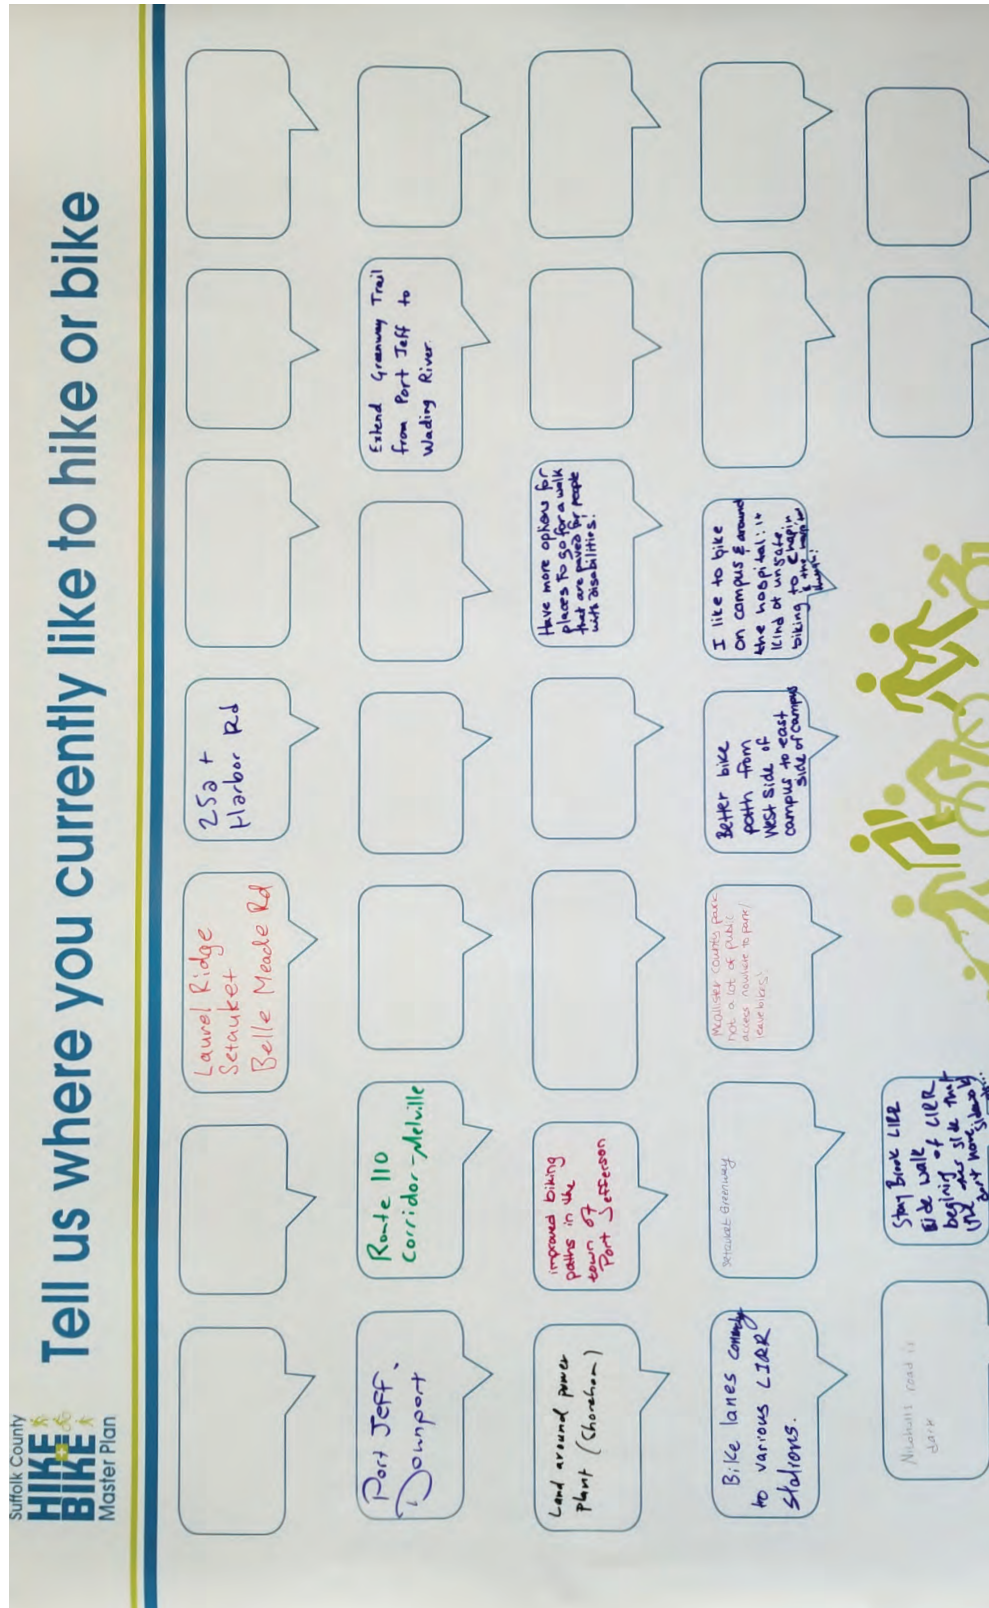 Suffolk County
HIKE
BIKE
Master Plan
Tell us where you currently like to hike or bike
Laurel Ridge
Setauket
Belle Meade Rd
25a +
Harbor Rd
Port Jeff,
Downport
Route 110
Corridor-Melville
Extend Greenway Trail
from Port Jeff to
Wading River.
Land around power
plant (Shoreham)
improved biking
paths in the
town of
Port Jefferson
Have more options for
places to go for a walk
that are paved for people
with disabilities!
Bike lanes
to various LIRR
stations.
Setauket Greenway
Mcallister County park
not a lot of public
access nowhere to park/
leave bikes!
Better bike
path from
West side of
campus to east
side of campus
I like to bike
on campus & around
the hospital: it
kind of unsafe
biking to chapin
& the
though!
Nicholls road is
dark
Brook LIRR
side walk
of LIRR
side that